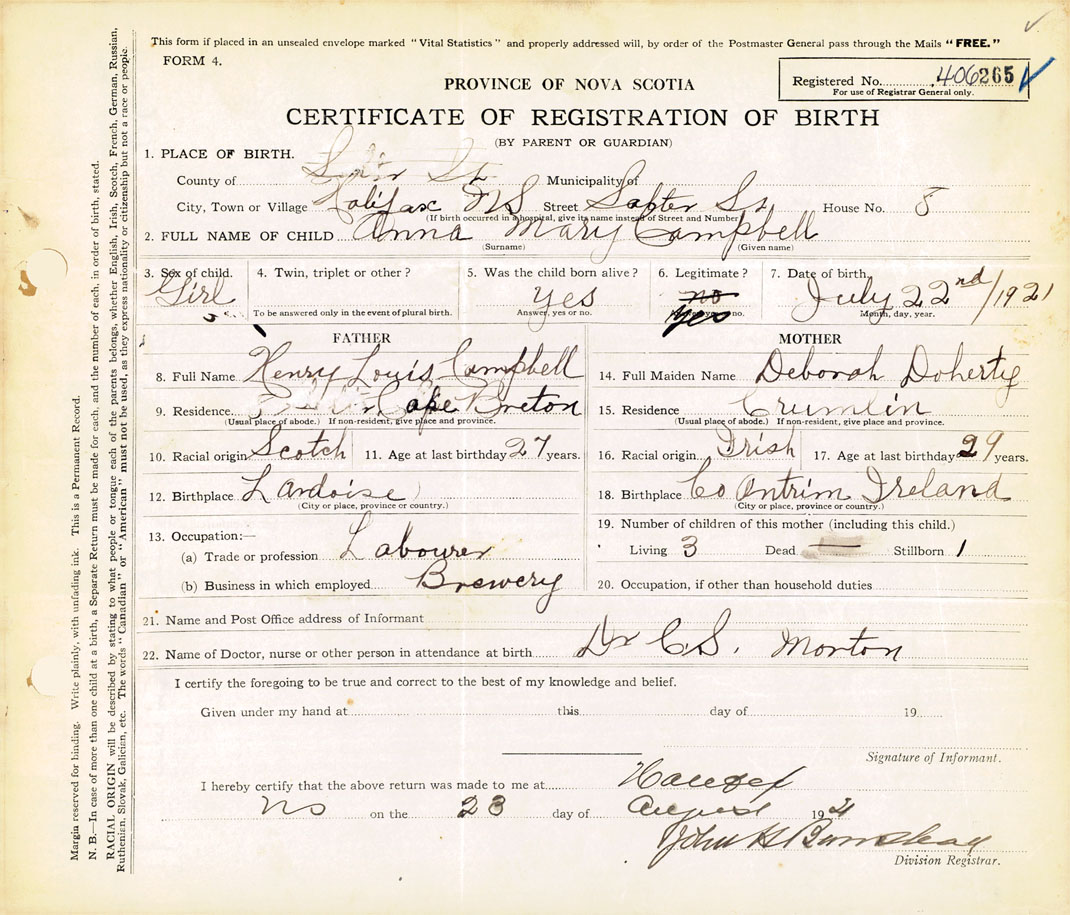 This form if placed in an unsealed envelope marked "Vital Statistics" and properly addressed will, by order of the Postmaster General pass through the Mails "FREE."
FORM 4.
Registered No. 406265
For use of Registrar General only.
PROVINCE OF NOVA SCOTIA
CERTIFICATE OF REGISTRATION OF BIRTH
(BY PARENT OR GUARDIAN)
1. PLACE OF BIRTH.
County of Municipality of
City, Town or Village Halifax NS Street St House No. 8
(If birth occurred in a hospital, give its name instead of Street and Number)
2. FULL NAME OF CHILD Anna Mary Campbell
(Surname) (Given name)
3. Sex of child. 4. Twin, triplet or other? 5. Was the child born alive? 6. Legitimate? 7. Date of birth.
Girl yes no yes July 22nd/1921
To be answered only in the event of plural birth. Answer, yes or no. Answer, yes or no. Month, day, year.
FATHER MOTHER
8. Full Name Henry Louis Campbell 14. Full Maiden Name Deborah Doherty
9. Residence Cape Breton 15. Residence Crumlin
(Usual place of abode.) If non-resident, give place and province. (Usual place of abode.) If non-resident, give place and province.
10. Racial origin Scotch 11. Age at last birthday 27 years. 16. Racial origin Irish 17. Age at last birthday 29 years.
12. Birthplace L Ardoise 18. Birthplace Co Antrim Ireland
(City or place, province or country.) (City or place, province or country.)
13. Occupation:— 19. Number of children of this mother (including this child.)
(a) Trade or profession Labourer Living 3 Dead — Stillborn 1
(b) Business in which employed Brewery 20. Occupation, if other than household duties
21. Name and Post Office address of Informant
22. Name of Doctor, nurse or other person in attendance at birth Dr C.S. Morton
I certify the foregoing to be true and correct to the best of my knowledge and belief.
Given under my hand at this day of 19
Signature of Informant.
I hereby certify that the above return was made to me at Halifax
NS on the 23 day of August 1921
John H
Division Registrar.
Margin reserved for binding. Write plainly, with unfading ink. This is a Permanent Record.
N. B.—In case of more than one child at a birth, a Separate Return must be made for each, and the number of each, in order of birth, stated.
RACIAL ORIGIN will be described by stating to what people or tongue each of the parents belongs, whether English, Irish, Scotch, French, German, Russian,
Ruthenian, Slovak, Galician, etc. The words "Canadian" or "American" must not be used, as they express nationality or citizenship but not a race or people.